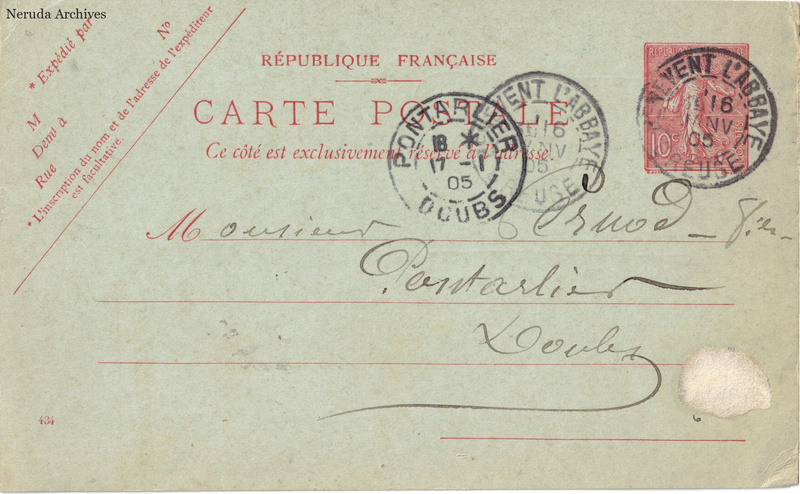 Neruda Archives
* Expédié par
M
Demt à
Rue
No
* L'inscription du nom et de l'adresse de l'expéditeur
est facultative.
RÉPUBLIQUE FRANÇAISE
CARTE POSTALE
Ce côté est exclusivement réservé à l'adresse.
PONTARLIER
18 *
17 - 1
05
DOUBS
EVENT L'ABBAYE
16
NV
05
REUSE
10c
EVENT L'ABBAYE
16
NV
05
REUSE
Monsieur Pernod - F.
Pontarlier
Doubs
434
6